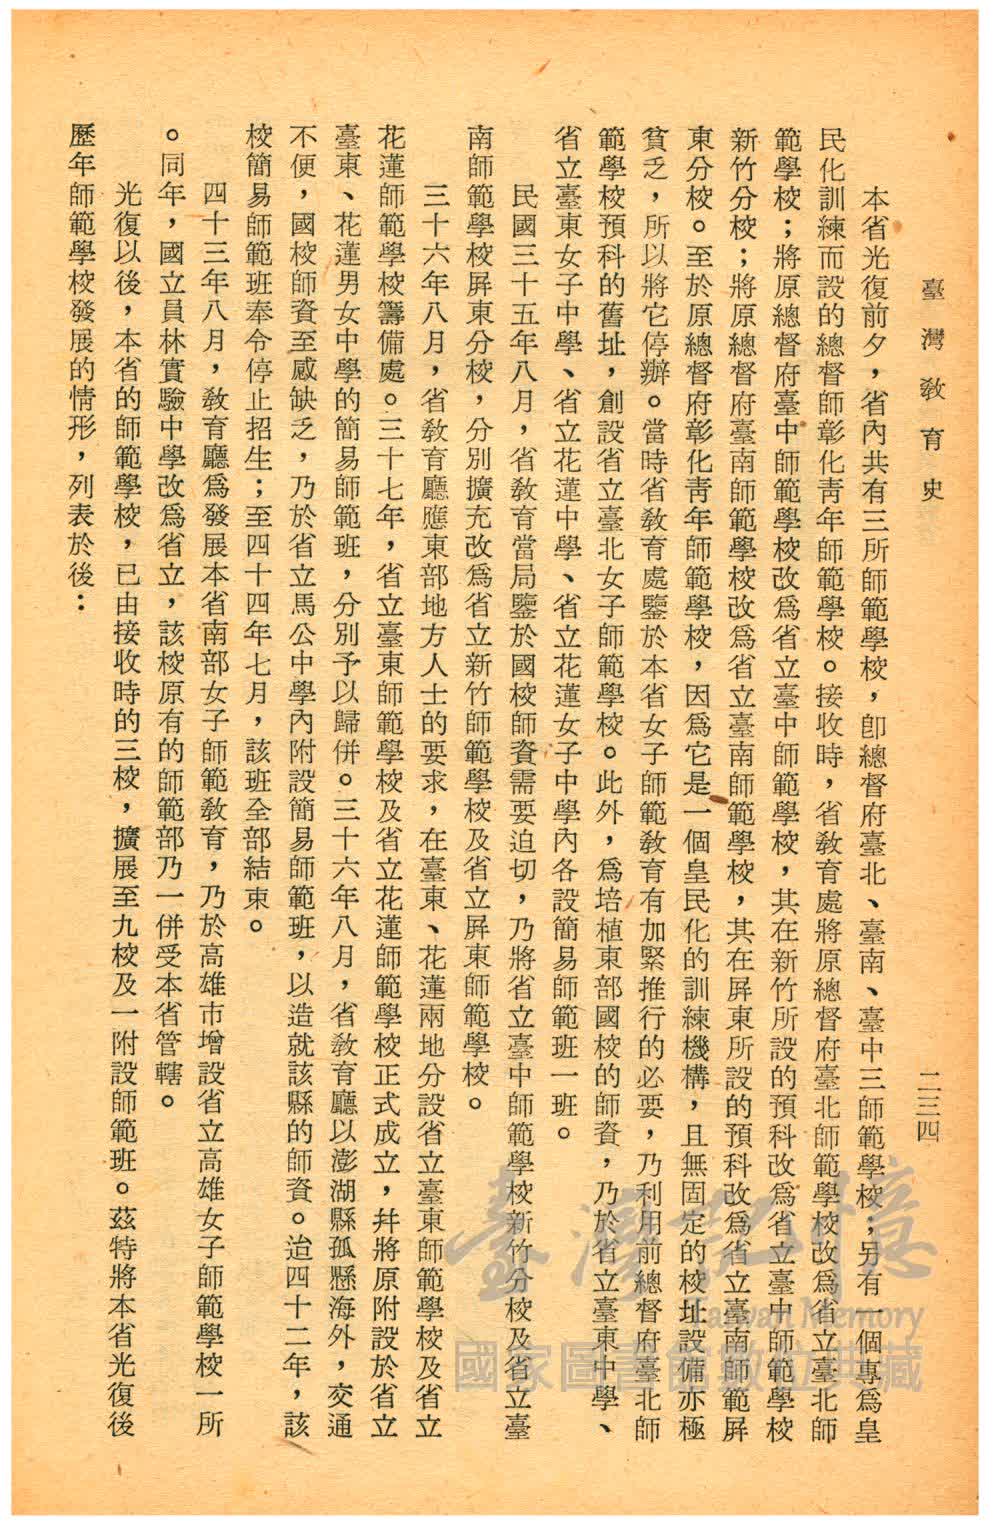 臺灣教育史
二三四
本省光復前夕，省內共有三所師範學校，卽總督府臺北、臺南、臺中三師範學校；另有一個專爲皇
民化訓練而設的總督師彰化靑年師範學校。接收時，省教育處將原總督府臺北師範學校改爲省立臺北師
範學校；將原總督府臺中師範學校改爲省立臺中師範學校，其在新竹所設的預科改爲省立臺中師範學校
新竹分校；將原總督府臺南師範學校改爲省立臺南師範學校，其在屏東所設的預科改爲省立臺南師範屏
東分校。至於原總督府彰化靑年師範學校，因爲它是一個皇民化的訓練機構，且無固定的校址設備亦極
貧乏，所以將它停辦。當時省教育處鑒於本省女子師範教育有加緊推行的必要，乃利用前總督府臺北師
範學校預科的舊址，創設省立臺北女子師範學校。此外，爲培植東部國校的師資，乃於省立臺東中學、
省立臺東女子中學、省立花蓮中學、省立花蓮女子中學內各設簡易師範班一班。
民國三十五年八月，省教育當局鑒於國校師資需要迫切，乃將省立臺中師範學校新竹分校及省立臺
南師範學校屏東分校，分別擴充改爲省立新竹師範學校及省立屏東師範學校。
三十六年八月，省教育廳應東部地方人士的要求，在臺東、花蓮兩地分設省立臺東師範學校及省立
花蓮師範學校籌備處。三十七年，省立臺東師範學校及省立花蓮師範學校正式成立，幷將原附設於省立
臺東、花蓮男女中學的簡易師範班，分別予以歸併。三十六年八月，省教育廳以澎湖縣孤懸海外，交通
不便，國校師資至感缺乏，乃於省立馬公中學內附設簡易師範班，以造就該縣的師資。迨四十二年，該
校簡易師範班奉令停止招生；至四十四年七月，該班全部結束。
四十三年八月，教育廳爲發展本省南部女子師範教育，乃於高雄市增設省立高雄女子師範學校一所
。同年，國立員林實驗中學改爲省立，該校原有的師範部乃一併受本省管轄。
光復以後，本省的師範學校，已由接收時的三校，擴展至九校及一附設師範班。茲特將本省光復後
歷年師範學校發展的情形，列表於後：
臺灣記憶
Taiwan Memory
國家圖書館數位典藏